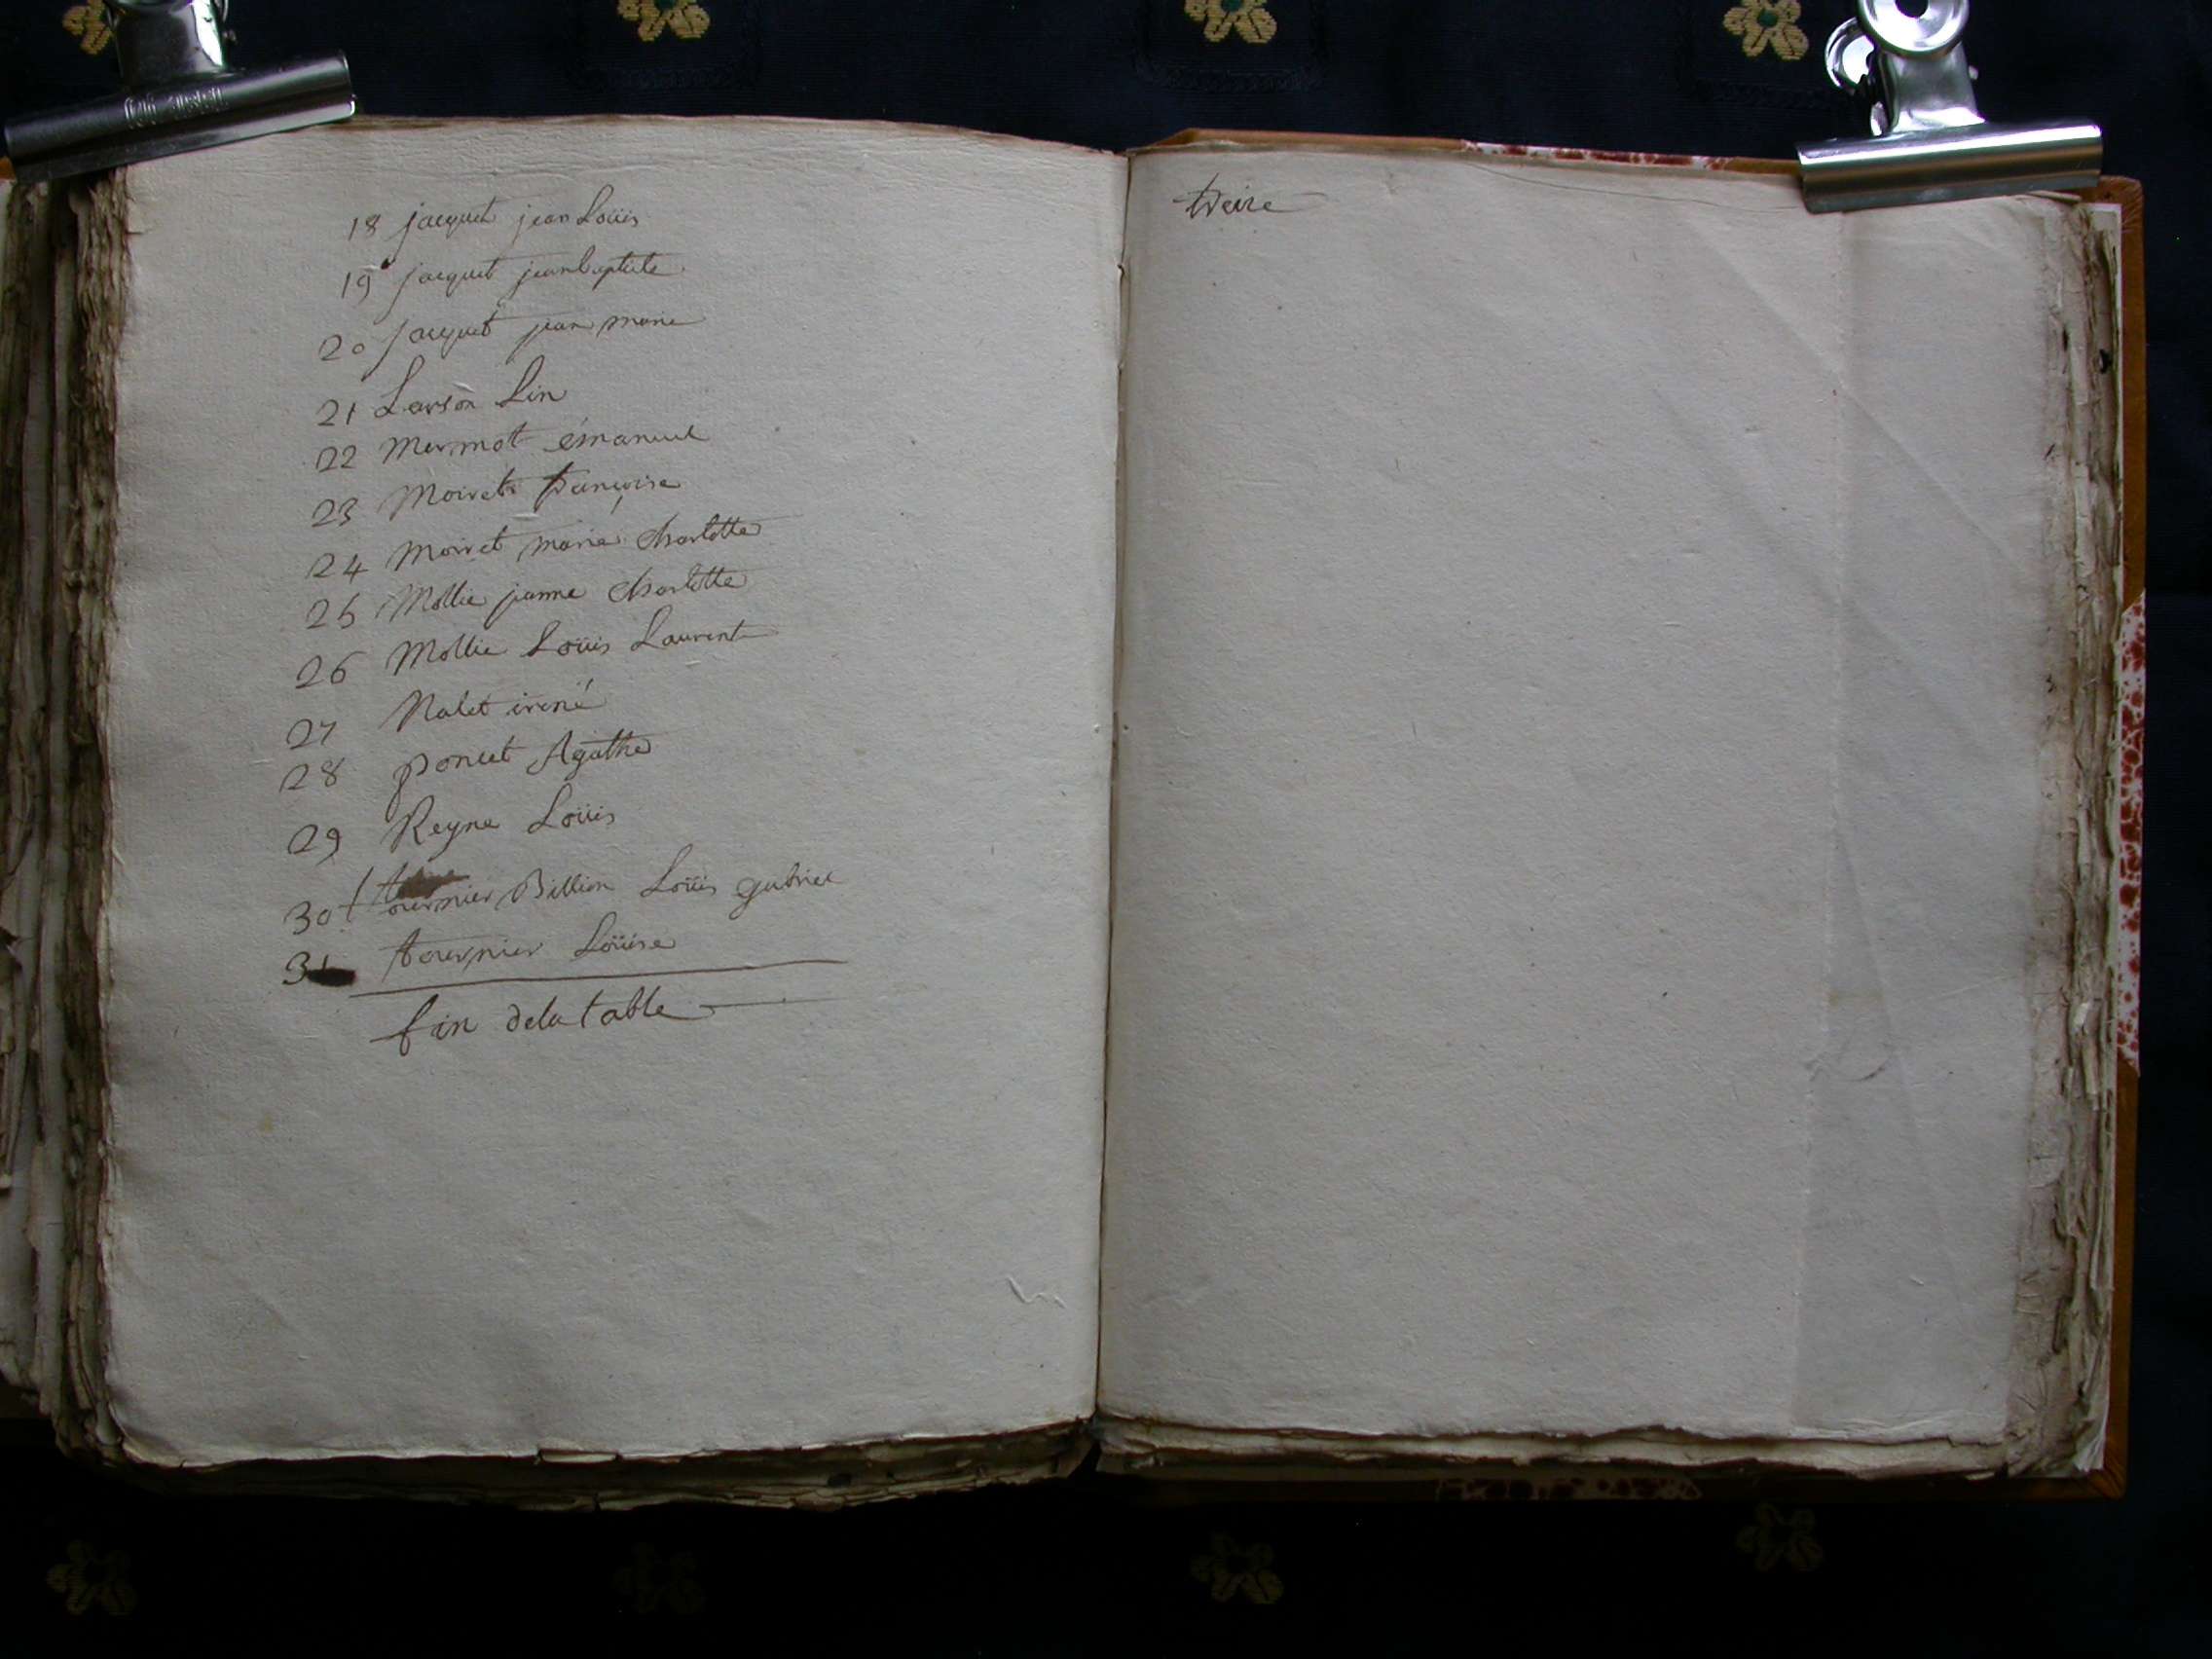 18 jacquet jean Loüis
19 jacquet jean baptiste
20 jacquet jean marie
21 Larson Lin
22 Mermot émanuel
23 Moiret françoise
24 Moiret marie charlotte
25 Mollie jeanne charlotte
26 Mollie Loüis Laurent
27 Nalet irené
28 poncet Agathe
29 Reyne Loüis
30 tournier Billion Loüis gabriel
31 tournier Loüise
fin dela table
treize